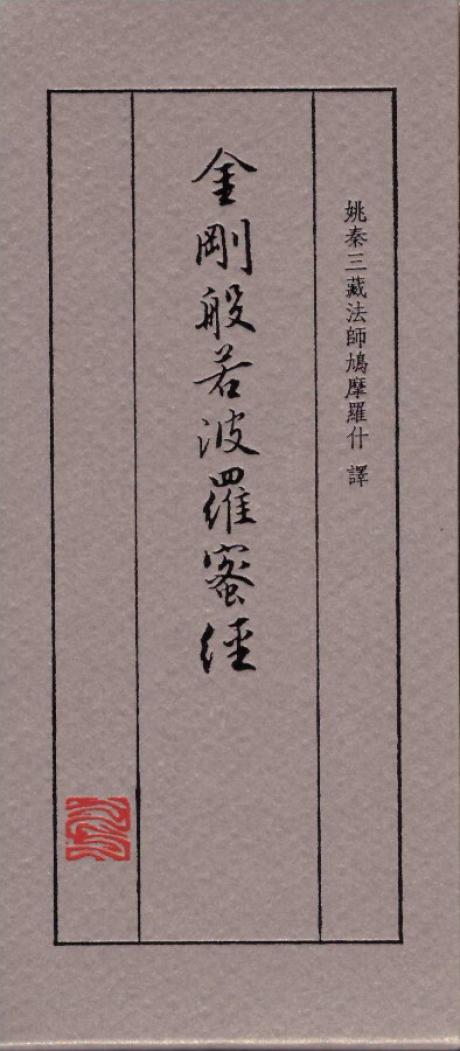 姚秦三藏法師鳩摩羅什 譯
金剛般若波羅蜜經